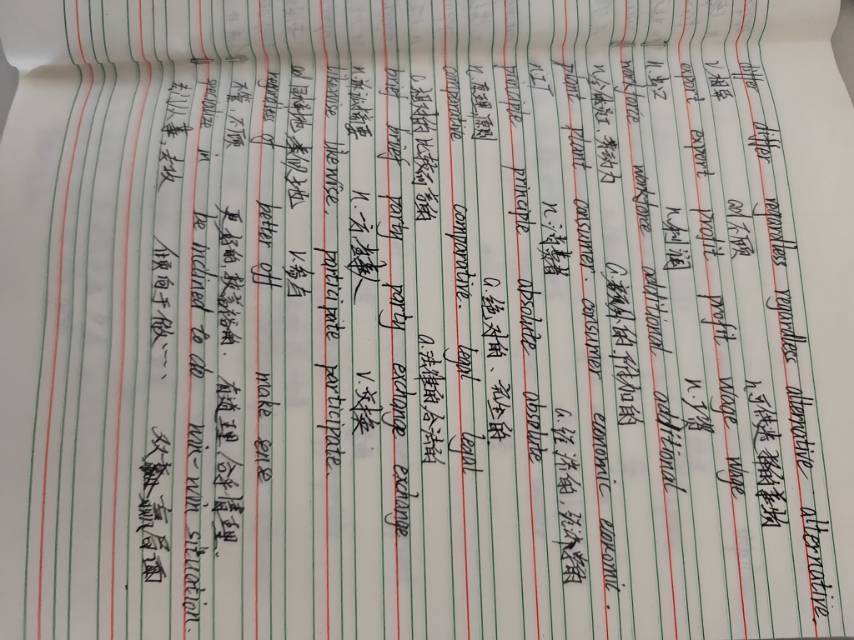 differ differ regardless regardless alternative alternative.
v.相异 adv.不顾 n.可供选择的事物
export export profit profit wage wage
n.出口 n.利润 n.工资
workforce workforce additional additional
n.劳动力 a.额外的 附加的
plant plant consumer consumer economic economic.
n.工厂 n.消费者 a.经济的,经济学的
principle principle absolute absolute
n.原理 原则 a.绝对的、完全的
comparative comparative. legal legal
a.相对的 比较而言的 a.法律的 合法的
brief brief party party exchange exchange
n.摘要 n.一方 当事人 v.交换
likewise likewise. participate participate.
ad.同样地 类似地 v.参与
regardless of better off make sense
不管 不顾 更好的 较富裕的. 有道理 合乎情理.
specialize in be inclined to do win-win situation.
专门从事,专攻 倾向于做… 双赢局面